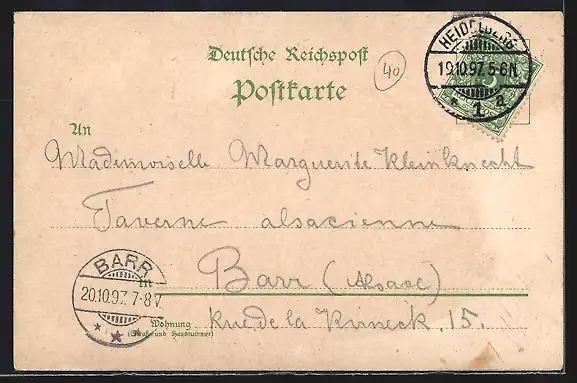 Deutsche Reichspost
Postkarte
40
HEIDELBERG
19.10.97. 5-6N.
* 1. a.
An
Mademoiselle Marguerite Kleinknecht
Taverne alsacienne
Barr (Alsace)
BARR
20.10.97. 7-8V.
Wohnung
(Straße und Hausnummer)
rue de la Kirneck, 15.